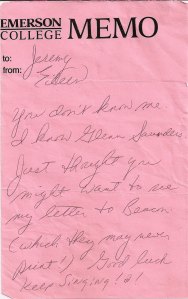 EMERSON
COLLEGE MEMO
to: Jeremy
from: Eileen
You don't know me.
I know Glenn Saunders
Just thought you
might want to see
my letter to Beacon.
(which they may never
print!) Good luck
Keep singing!